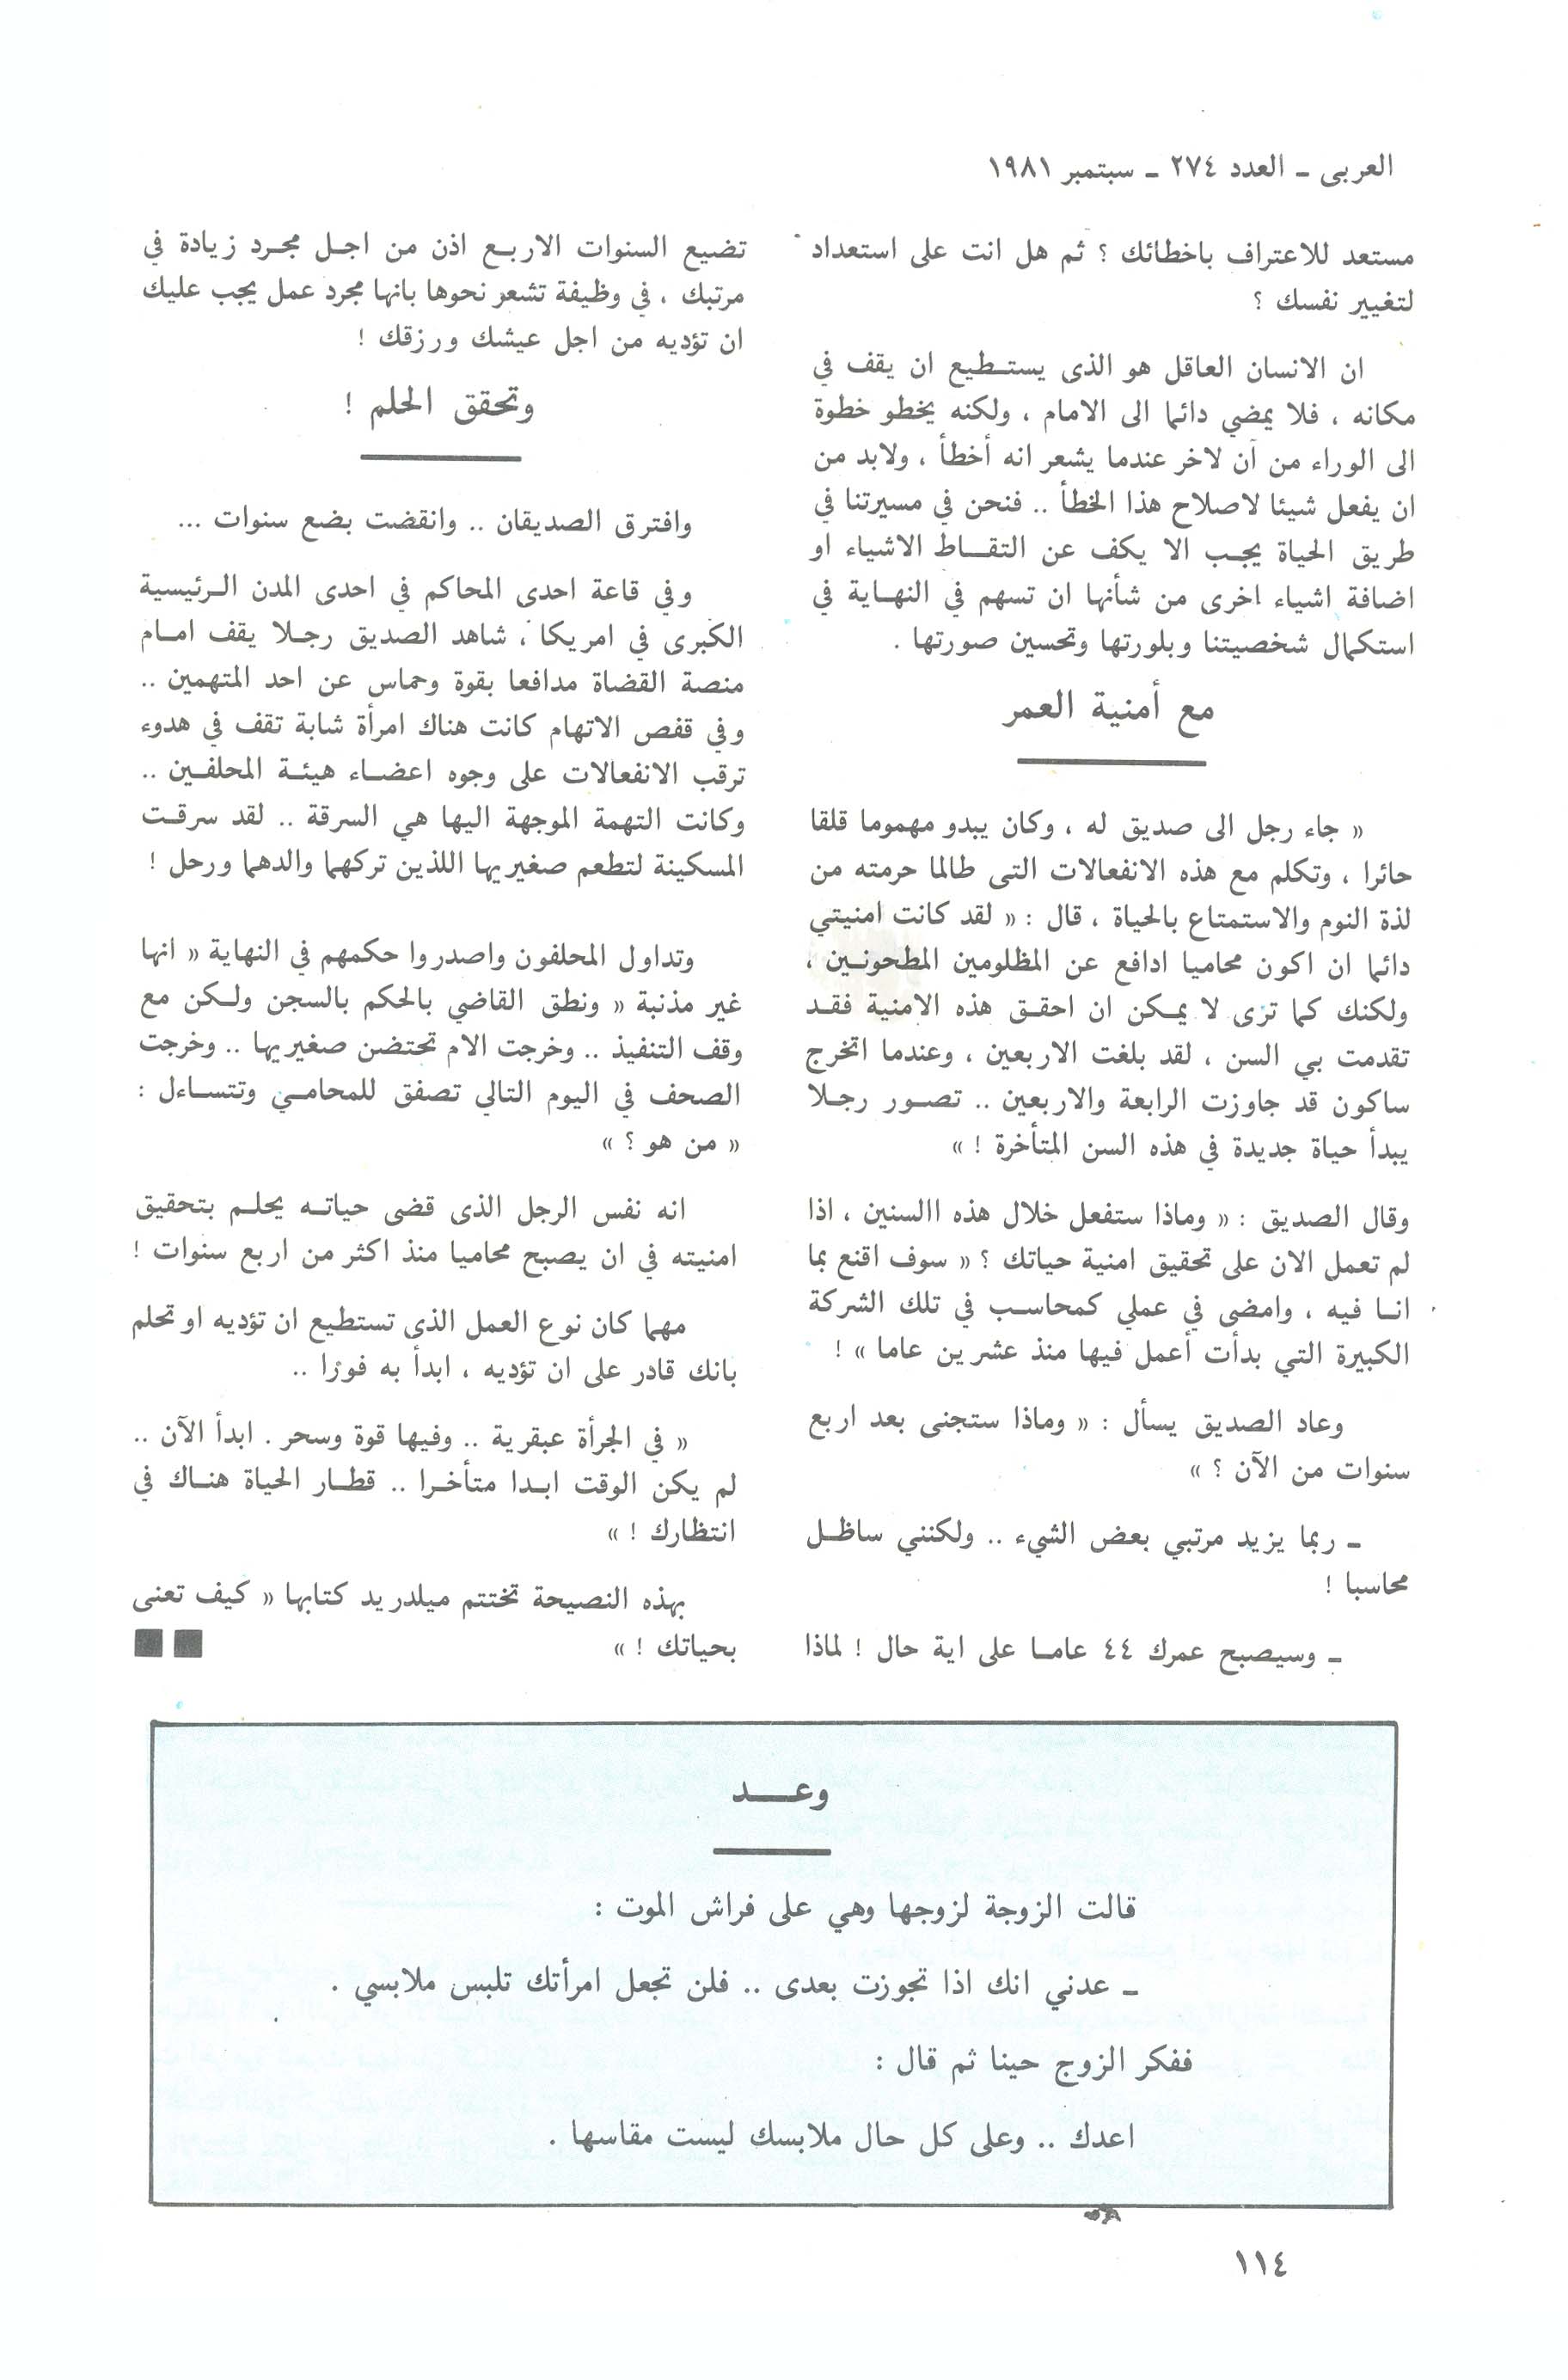 العربى ـ العدد ٢٧٤ ـ سبتمبر ١٩٨١
مستعد للاعتراف باخطائك ؟ ثم هل انت على استعداد
لتغيير نفسك ؟
ان الانسان العاقل هو الذى يستطيع ان يقف في
مكانه ، فلا يمضي دائما الى الامام ، ولكنه يخطو خطوة
الى الوراء من آن لاخر عندما يشعر انه أخطأ ، ولابد من
ان يفعل شيئا لاصلاح هذا الخطأ .. فنحن في مسيرتنا في
طريق الحياة يجب الا يكف عن التقاط الاشياء او
اضافة اشياء اخرى من شأنها ان تسهم في النهاية في
استكمال شخصيتنا وبلورتها وتحسين صورتها .
مع أمنية العمر
« جاء رجل الى صديق له ، وكان يبدو مهموما قلقا
حائرا ، وتكلم مع هذه الانفعالات التى طالما حرمته من
لذة النوم والاستمتاع بالحياة ، قال : « لقد كانت امنيتي
دائما ان اكون محاميا ادافع عن المظلومين المطحونين ،
ولكنك كما ترى لا يمكن ان احقق هذه الامنية فقد
تقدمت بي السن ، لقد بلغت الاربعين ، وعندما اتخرج
ساكون قد جاوزت الرابعة والاربعين .. تصور رجلا
يبدأ حياة جديدة في هذه السن المتأخرة ! »
وقال الصديق : « وماذا ستفعل خلال هذه االسنين ، اذا
لم تعمل الان على تحقيق امنية حياتك ؟ « سوف اقنع بما
انا فيه ، وامضى في عملي كمحاسب في تلك الشركة
الكبيرة التي بدأت أعمل فيها منذ عشرين عاما » !
وعاد الصديق يسأل : « وماذا ستجنى بعد اربع
سنوات من الآن ؟ »
ـ ربما يزيد مرتبي بعض الشيء .. ولكنني ساظل
محاسبا !
ـ وسيصبح عمرك ٤٤ عاما على اية حال ! لماذا
تضيع السنوات الاربع اذن من اجل مجرد زيادة في
مرتبك ، في وظيفة تشعر نحوها بانها مجرد عمل يجب عليك
ان تؤديه من اجل عيشك ورزقك !
وتحقق الحلم !
وافترق الصديقان .. وانقضت بضع سنوات ...
وفي قاعة احدى المحاكم في احدى المدن الرئيسية
الكبرى في امريكا ، شاهد الصديق رجلا يقف امام
منصة القضاة مدافعا بقوة وحماس عن احد المتهمين ..
وفي قفص الاتهام كانت هناك امرأة شابة تقف في هدوء
ترقب الانفعالات على وجوه اعضاء هيئة المحلفين ..
وكانت التهمة الموجهة اليها هي السرقة .. لقد سرقت
المسكينة لتطعم صغيريها اللذين تركهما والدهما ورحل !
وتداول المحلفون واصدروا حكمهم في النهاية « انها
غير مذنبة « ونطق القاضي بالحكم بالسجن ولكن مع
وقف التنفيذ .. وخرجت الام تحتضن صغيريها .. وخرجت
الصحف في اليوم التالي تصفق للمحامي وتتساءل :
« من هو ؟ »
انه نفس الرجل الذى قضى حياته يحلم بتحقيق
امنيته في ان يصبح محاميا منذ اكثر من اربع سنوات !
مهما كان نوع العمل الذى تستطيع ان تؤديه او تحلم
بانك قادر على ان تؤديه ، ابدأ به فورا ..
« في الجرأة عبقرية .. وفيها قوة وسحر . ابدأ الآن ..
لم يكن الوقت ابدا متأخرا .. قطار الحياة هناك في
انتظارك ! »
بهذه النصيحة تختتم ميلدريد كتابها « كيف تعنى
بحياتك ! »
وعـــد
قالت الزوجة لزوجها وهي على فراش الموت :
ـ عدني انك اذا تجوزت بعدى .. فلن تجعل امرأتك تلبس ملابسي .
ففكر الزوج حينا ثم قال :
اعدك .. وعلى كل حال ملابسك ليست مقاسها .
١١٤